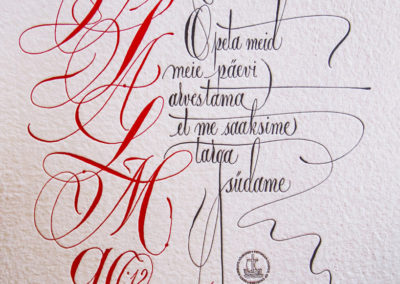 A
L
M
90:12
Õpeta meid
meie päevi
arvestama
et me saaksime
targa
südame